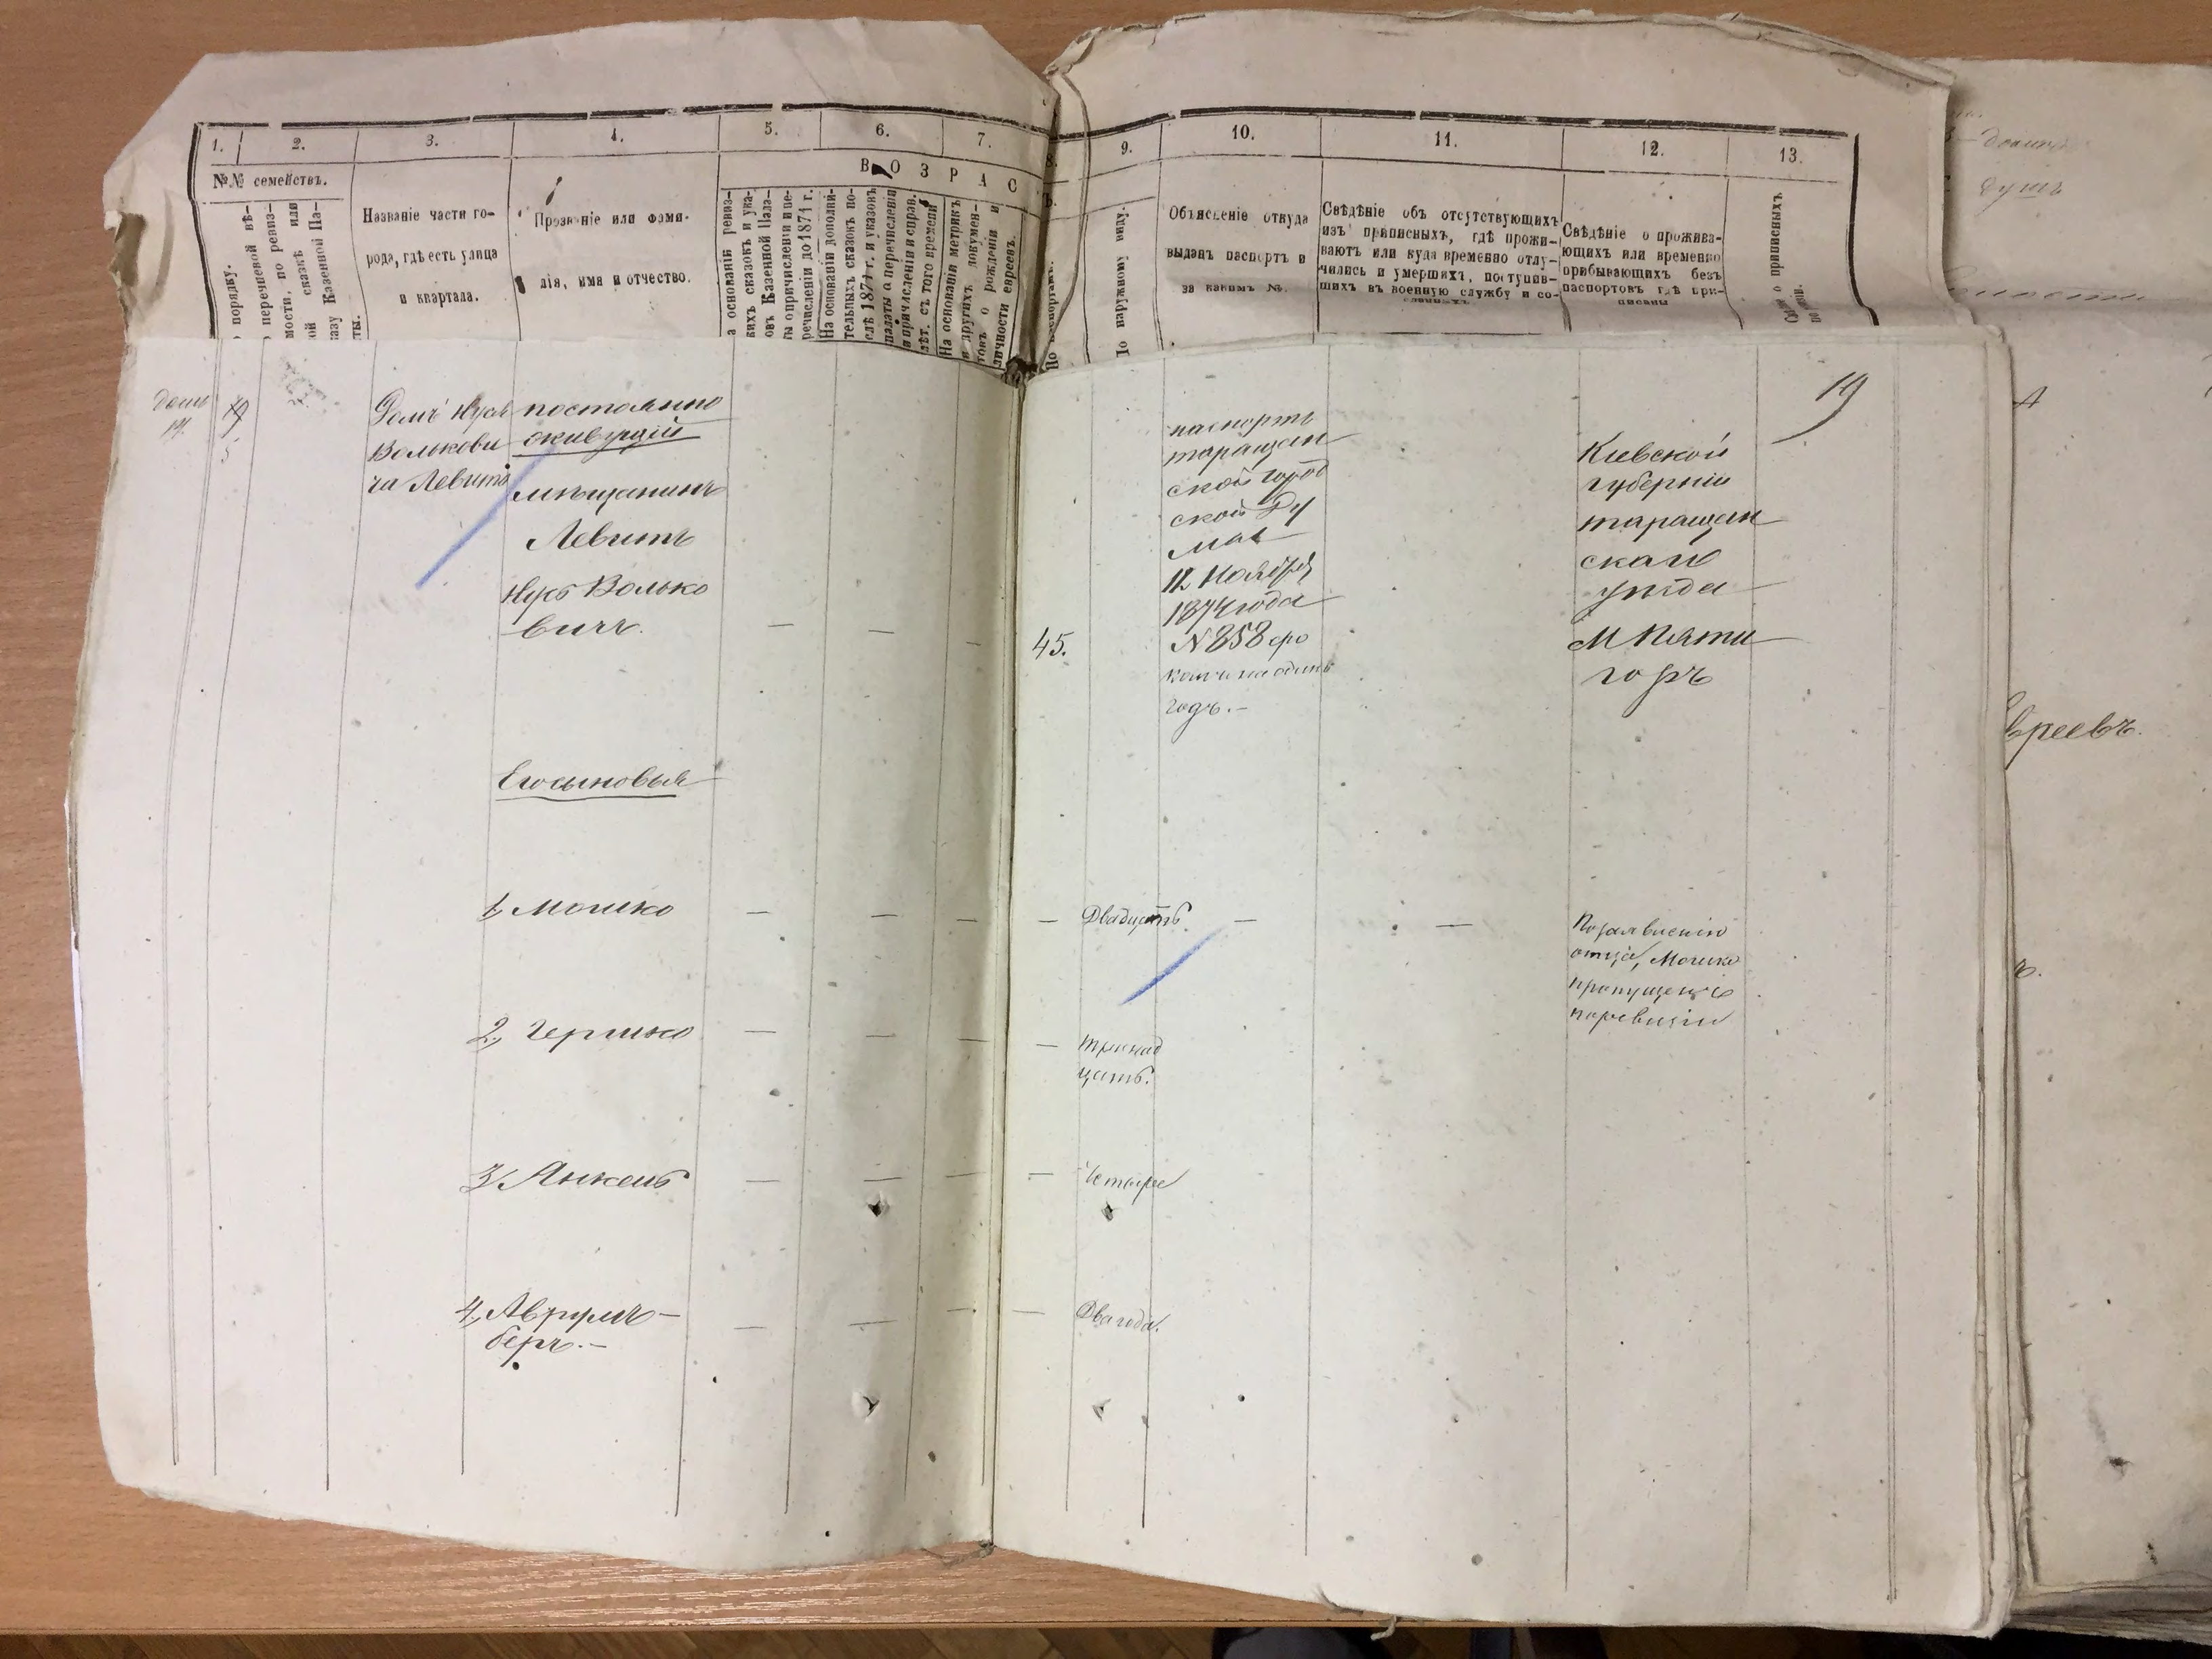 1.
2.
3.
4.
5.
6.
7.
8.
9.
10.
11.
12.
13.
№№ семействъ.
ВОЗРАС
Ъ.
порядку.
перечневой вѣ-
мости, по ревиз-
ой сказкѣ или
казу Казенной Па-
ты.
Названіе части го-
рода, гдѣ есть улица
и квартала.
Прозваніе или фами-
лія, имя и отчество.
а основаніи ревиз-
кихъ сказокъ и ука-
овъ Казенной Пала-
ты о причисленіи и пе-
речисленіи до 1871 г.
На основаніи дополни-
тельныхъ сказокъ по-
слѣ 1871 г. и указовъ
палаты о перечисленіи
и причисленіи и справ.
лѣт. съ того времени
На основаніи метрикъ
и другихъ докумен-
товъ о рожденіи и
личности евреевъ.
По паспортамъ.
По наружному виду.
Объясненіе откуда
выданъ паспортъ и
за какимъ №.
Свѣдѣніе объ отсутствующихъ
изъ приписныхъ, гдѣ прожи-
ваютъ или куда временно отлу-
чились и умершихъ, поступив-
шихъ въ военную службу и со-
Свѣдѣніе о прожива-
ющихъ или временно
прибывающихъ безъ
паспортовъ гдѣ при-
писаны
о приписныхъ
19
домъ
19.
5
Домъ Нуся
Волькови
ча Левита
постоянно
живущій
мѣщанинъ
Левитъ
Нусь Волько
вичъ.
45.
паспортъ
таращан
ской город
ской Ду
мы
12 Ноября
1874 года
N 858 сро
комъ на одинъ
годъ.-
Кіевской
губерніи
таращан
скаго
уѣзда
М Пяти
горъ
Его сыновья
1, Мошко
Двадцать.
По заявленію
отца, Мошко
пропущенъ
по ревизіи
2, Гершко
тринад
цать.
3, Янкель
Четыре
4, Аврумъ-
беръ.-
Два года.
душъ
вреевъ.